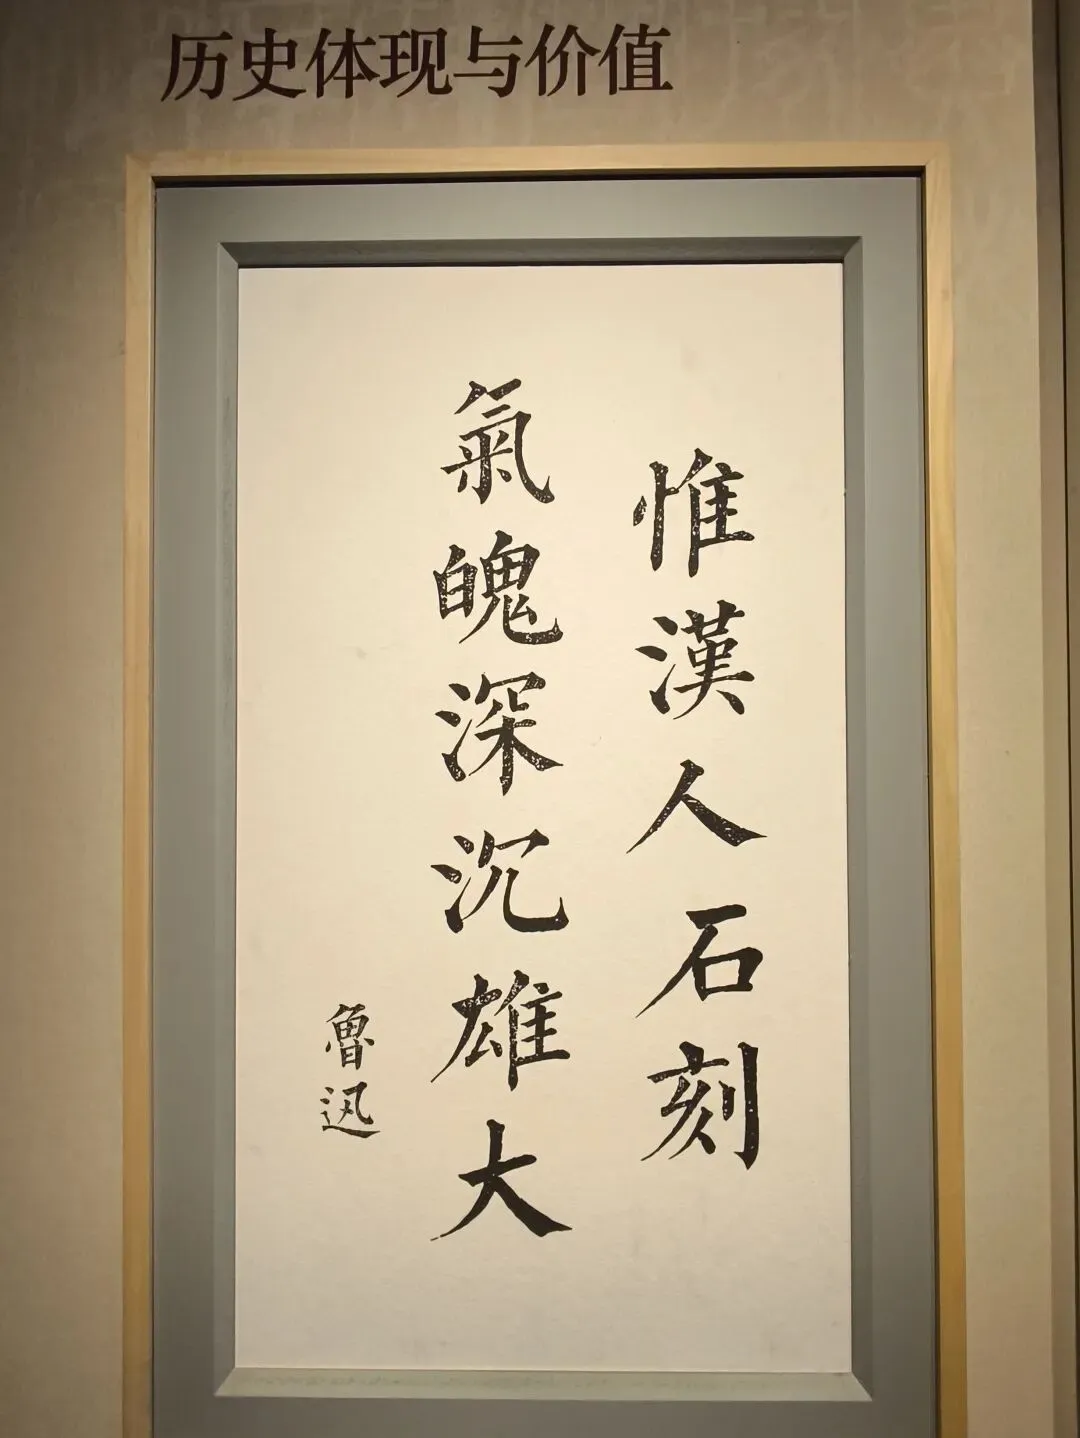 历史体现与价值
惟漢人石刻
氣魄深沉雄大
魯迅